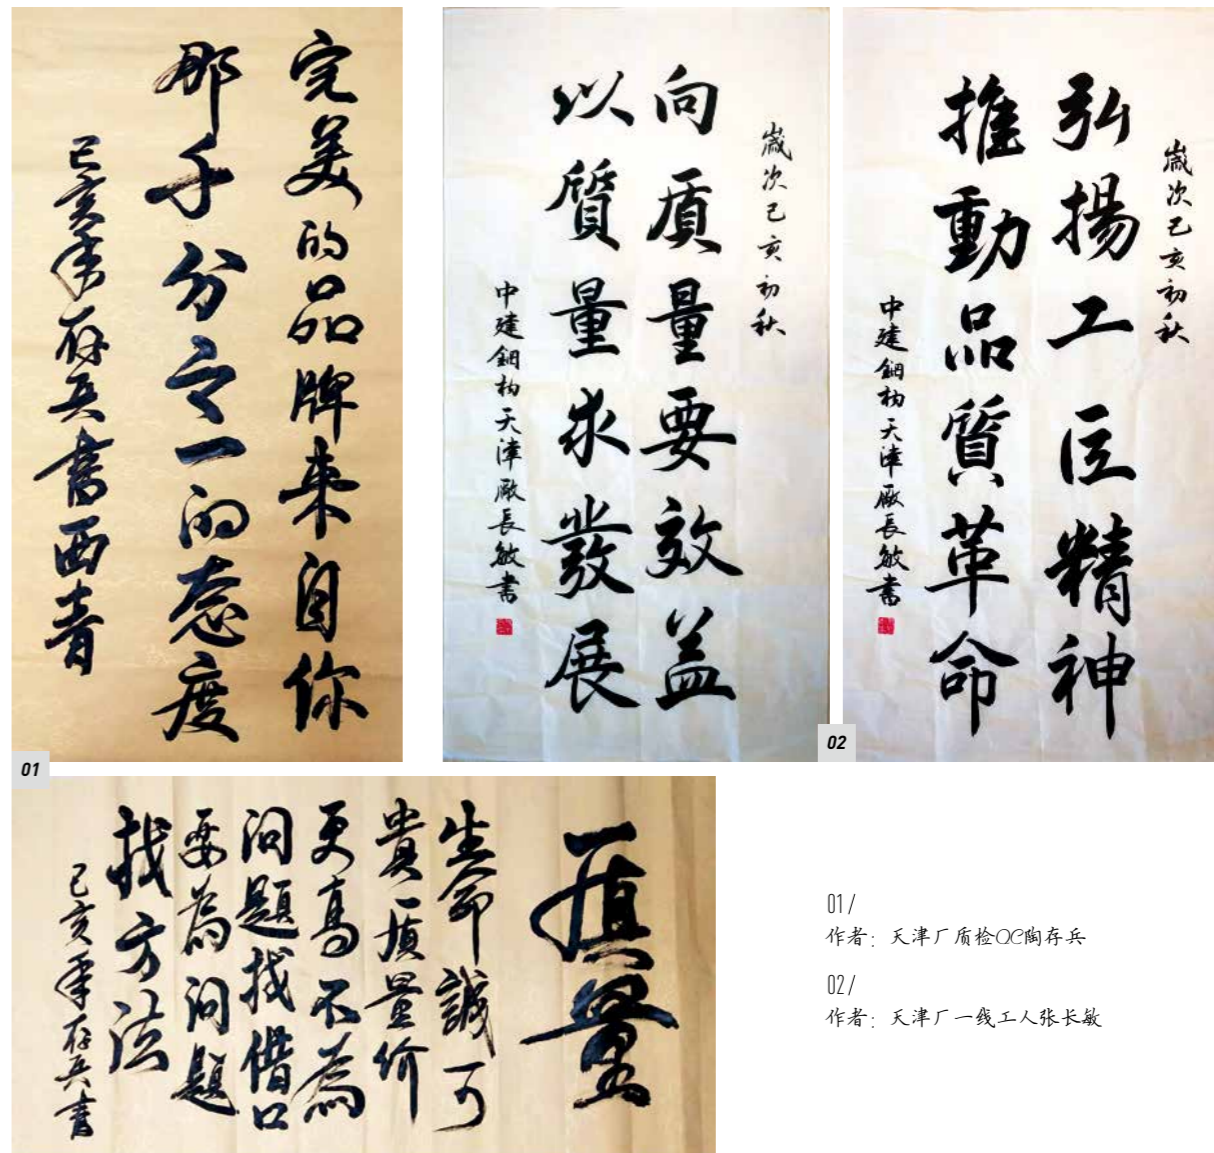 完美的品牌来自你
那千分之一的态度
己亥年存兵书西青
01
歲次己亥初秋
向質量要效益
以質量求發展
中建鋼構天津廠長敏書
歲次己亥初秋
弘揚工匠精神
推動品質革命
中建鋼構天津廠長敏書
02
質量
生命誠可
貴質量价
更高不為
问題找借口
要為问題
找方法
己亥年存兵書
01/
作者：天津厂质检QC陶存兵
02/
作者：天津厂一线工人张长敏